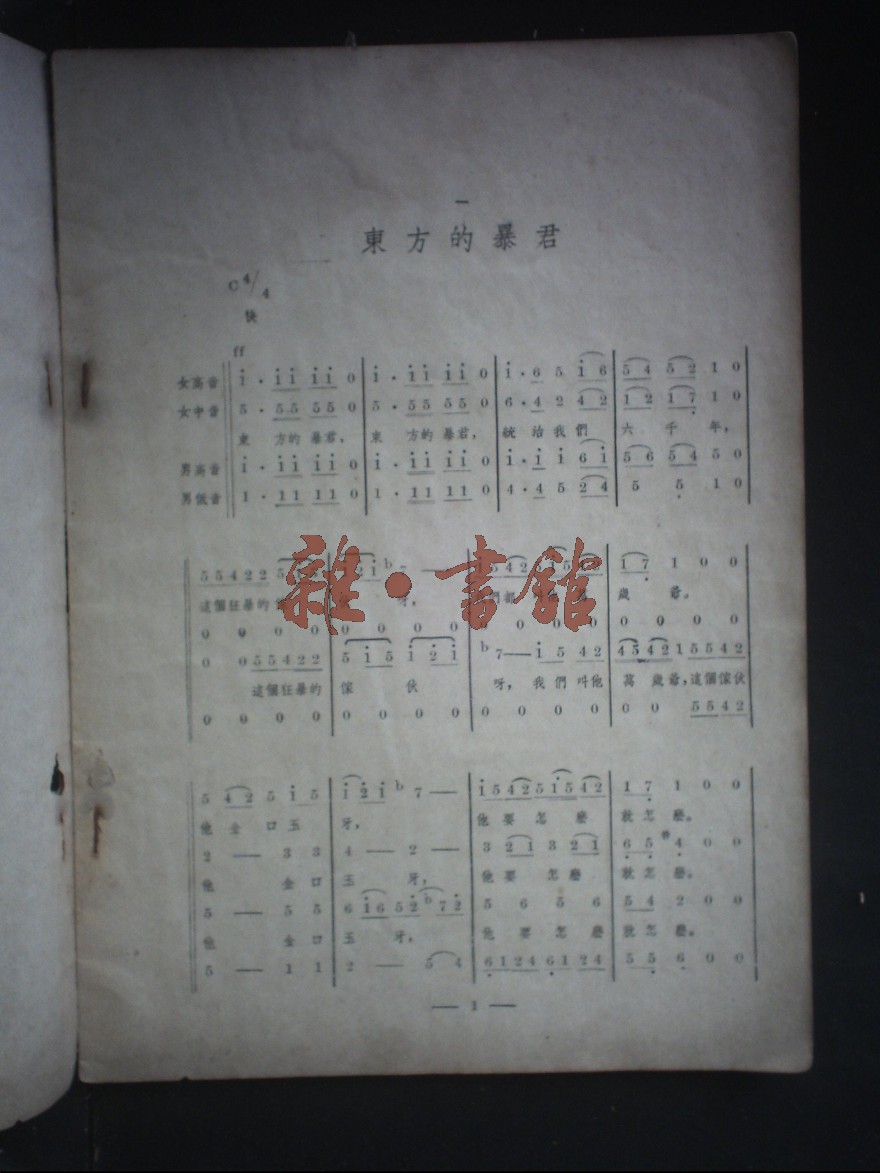 一
東方的暴君
C 4/4
快
ff
女高音 1 · 11 11 0 1 · 11 11 0 1 · 6 5 1 6 5 4 5 2 1 0
女中音 5 · 55 55 0 5 · 55 55 0 6 · 4 2 4 2 1 2 1 7 1 0
東 方的 暴君, 東 方的 暴君, 統 治 我 們 六 千 年,
男高音 1 · 11 11 0 1 · 11 11 0 1 · 1 1 6 1 5 6 5 4 5 0
男低音 1 · 11 11 0 1 · 11 11 0 4 · 4 5 2 4 5 5 1 0
雜·書館
這個狂暴的 呀, 們都 歲 爺。
0 0 0 0 0 0 0 0 0 0 0 0 0 0 0 0
0 0 5 5 4 2 2 5 1 5 1 2 1 b7 — 1 5 4 2 4 5 4 2 1 5 5 4 2
這個狂暴的 傢 伙 呀, 我們叫他 萬 歲 爺,這個傢伙
0 0 0 0 0 0 0 0 0 0 0 0 0 0 5 5 4 2
5 4 2 5 1 5 1 2 1 b7 — 1 5 4 2 5 1 5 4 2 1 7 1 0 0
他 金 口 玉 牙, 他 要 怎 麼 就 怎 麼。
2 — 3 3 4 — 2 — 3 2 1 3 2 1 6 5 #4 0 0
他 金 口 玉 牙, 他 要 怎 麼 就 怎 麼。
5 — 5 5 6 1 6 5 2 b7 2 5 6 5 6 5 4 2 0 0
他 金 口 玉 牙, 他 要 怎 麼 就 怎 麼。
5 — 1 1 2 — 5 4 6 1 2 4 6 1 2 4 5 5 6 0 0
— 1 —